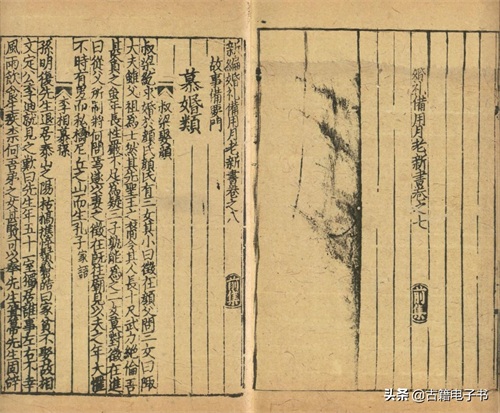 婚礼備用月老新書卷之七
前集
新編婚礼備用月老新書卷之八
前集
故事備要門
慕婚類
叔梁求顔
叔梁紇求婚於顔氏顔氏有三女其小曰徵在顔父問三女曰陬
大夫雖父祖爲士然其先聖王之裔今其人長十尺武力絶倫吾
甚貪之雖年長性嚴不足爲疑三子孰能爲之妻二女莫對徵在進
曰從父所制將何問焉遂以妻之徵在既往廟見以夫之年大懼
不時有男而私禱尼丘之山而生孔子 家語
李相
孫明復先生退居泰山之陽枯槁憔悴鬚鬢皓白家貧不娶故相
文定公李迪就見之歎曰先生年五十一室獨居誰事左右不幸
風雨飲食生疾奈何吾弟之女甚賢可以奉先生箕箒先生固辭
头条 @古籍电子书